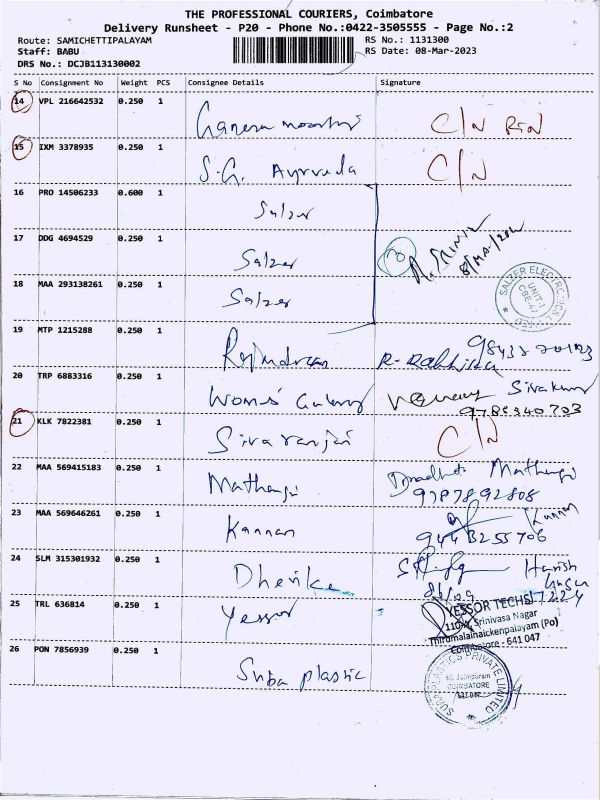 THE PROFESSIONAL COURIERS, Coimbatore
Delivery Runsheet - P20 - Phone No.:0422-3505555 - Page No.:2
Route: SAMICHETTIPALAYAM RS No.: 1131300
Staff: BABU RS Date: 08-Mar-2023
DRS No.: DCJB113130002
S No Consignment No Weight PCS Consignee Details Signature
14 VPL 216642532 0.250 1
C/N
15 IXM 3378935 0.250 1
S.G. Ayrveda C/N
16 PRO 14506233 0.600 1
Salzer
17 DDG 4694529 0.250 1
Salzer
18 MAA 293138261 0.250 1
Salzer
SALZER ELECTRONICS LIMITED
UNIT-1
CBE-47
19 MTP 1215288 0.250 1
20 TRP 6883316 0.250 1
Sivakumar
21 KLK 7822381 0.250 1
Sivaranjni C/N
22 MAA 569415183 0.250 1
Mathangi Mathangi
9787892808
23 MAA 569646261 0.250 1
Kannan Kannan
9443255706
24 SLM 315301932 0.250 1
Harish
25 TRL 636814 0.250 1
Yessor
YESSOR TECHS
Srinivasa Nagar
Thirumalainaickenpalayam (Po)
Coimbatore - 641 047
26 PON 7856939 0.250 1
Suba plastic
PRIVATE LIMITED
COIMBATORE